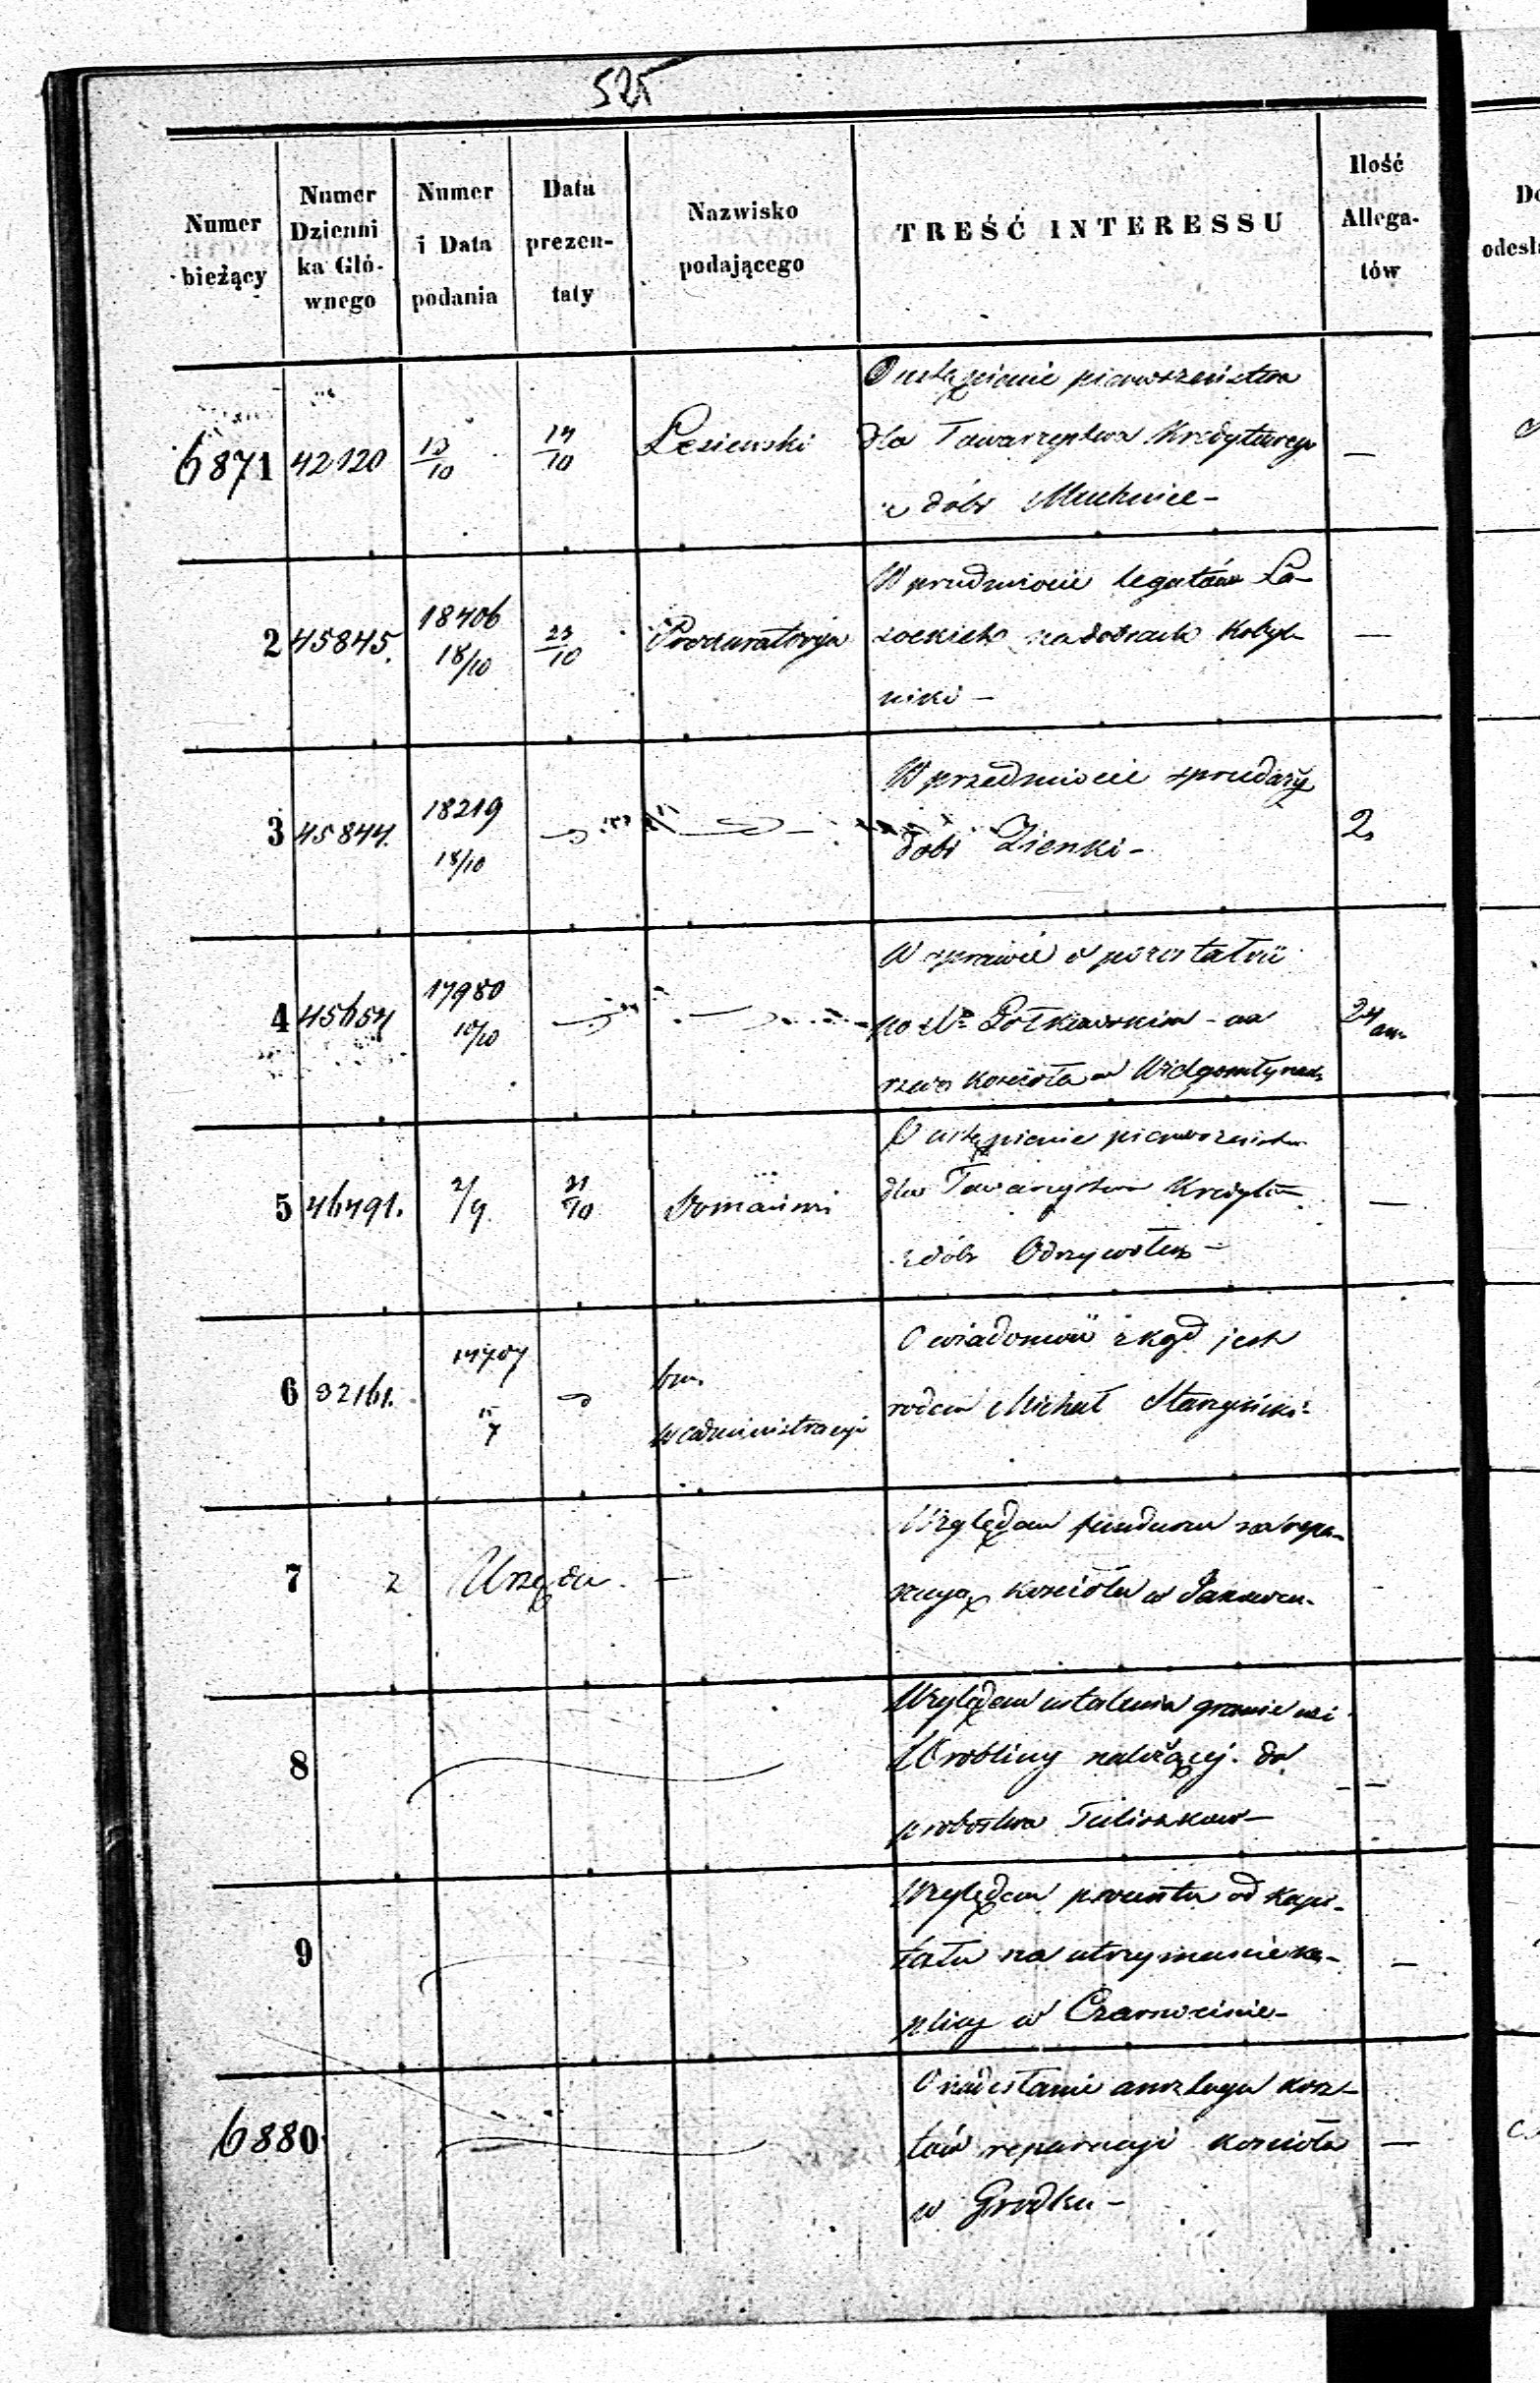 525
Numer bieżący
Numer Dzienni ka Głó- wnego
Numer i Data podania
Data prezen- taty
Nazwisko podającego
TREŚĆ INTERESSU
Ilość Allega- tów
6871 42120 13/10 14/10 Lesiewski
O ustąpienie pierwszeństwa
dla Towarzystwa Kredytowego
z dóbr —
2 45845. 18406 18/10 23/10 Prokuratorya
W przedmiocie legatów Ła-
zockich na dobrach Kobyl-
niki —
3 45844. 18219 18/10
W przedmiocie sprzedaży
dóbr Zienki — 2
4 45654 17980 10/10
W sprawie o pozostałości
po Xs Połkowskim - na
rzecz Kościoła w 24
5 46491. 2/9 21/10 Domański
O ustąpienie pierwszeństwa
dla Towarzystwa Kredyto
z dóbr Odrzywołek —
6 32161. 15/7
w administracyi
O wiadomość zkąd jest
rodem Michał Starzyński
7 z Urzędu. —
Względem funduszu na repa-
racyą kościoła w
8
Względem ustalenia granic wsi
Wrobliny należącej do
probostwa Tuliszków —
9
Względem procentu od kapi-
tału na utrzymanie ka-
plicy w Czarnocinie —
6880
O nadesłanie anszlagu kosz-
tów reparacyi kościoła
w Grodku —